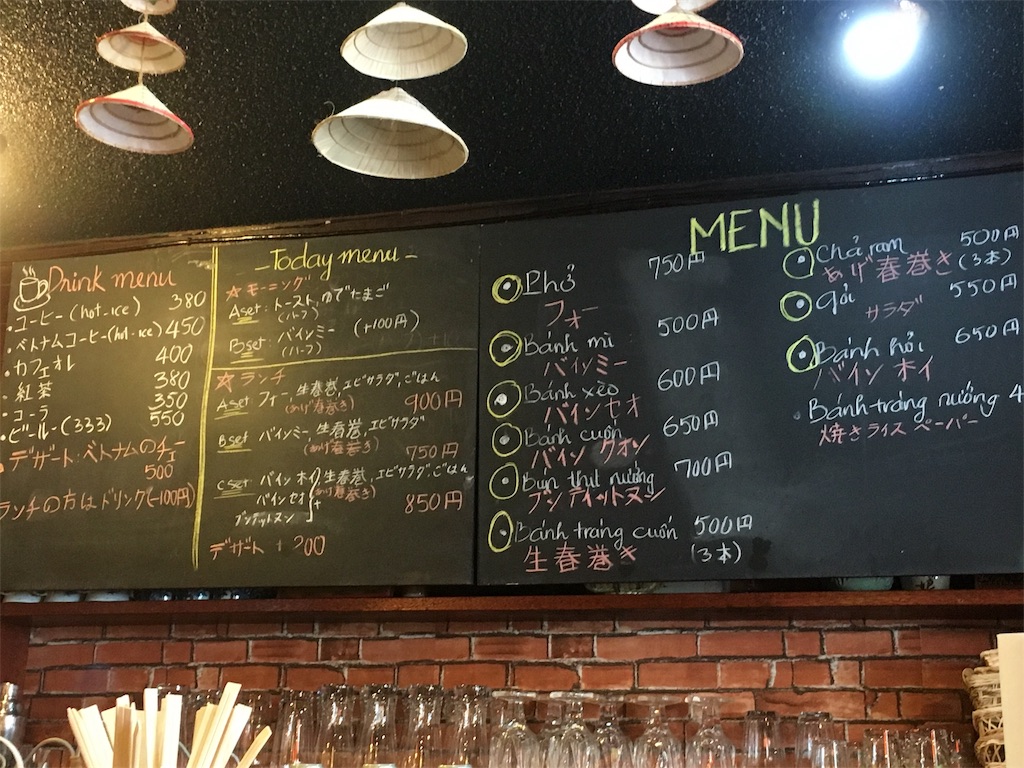 Drink menu
・コーヒー (hot-ice) 380
・ベトナムコーヒー(hot-ice) 450
・カフェオレ 400
・紅茶 380
・コーラ 350
・ビール-(333) 550
デザート:ベトナムのチェ
500
ランチの方はドリンク(-100円)
-Today menu-
☆モーニング
Aset: トースト,ゆでたまご
(ハーフ)
Bset: バインミー (+100円)
(ハーフ)
☆ランチ
Aset フォー,生春巻,エビサラダ,ごはん
(あげ春巻き) 900円
Bset バインミー,生春巻,エビサラダ
(あげ春巻き) 750円
Cset バイン ホイ 生春巻,エビサラダ,ごはん
バインセオ + (あげ春巻き) 850円
ブンティットヌン
デザート +200
MENU
Phở 750円
フォー
Bánh mì 500円
バインミー
Bánh xèo 600円
バインセオ
Bánh cuốn 650円
バイン クオン
Bún thịt nướng 700円
ブンティットヌーン
Bánh tráng cuốn 500円
生春巻き (3本)
Chả ram 500円
あげ春巻き (3本)
Gỏi 550円
サラダ
Bánh hỏi 650円
バイン ホイ
Bánh tráng nướng 4
焼きライスペーパー